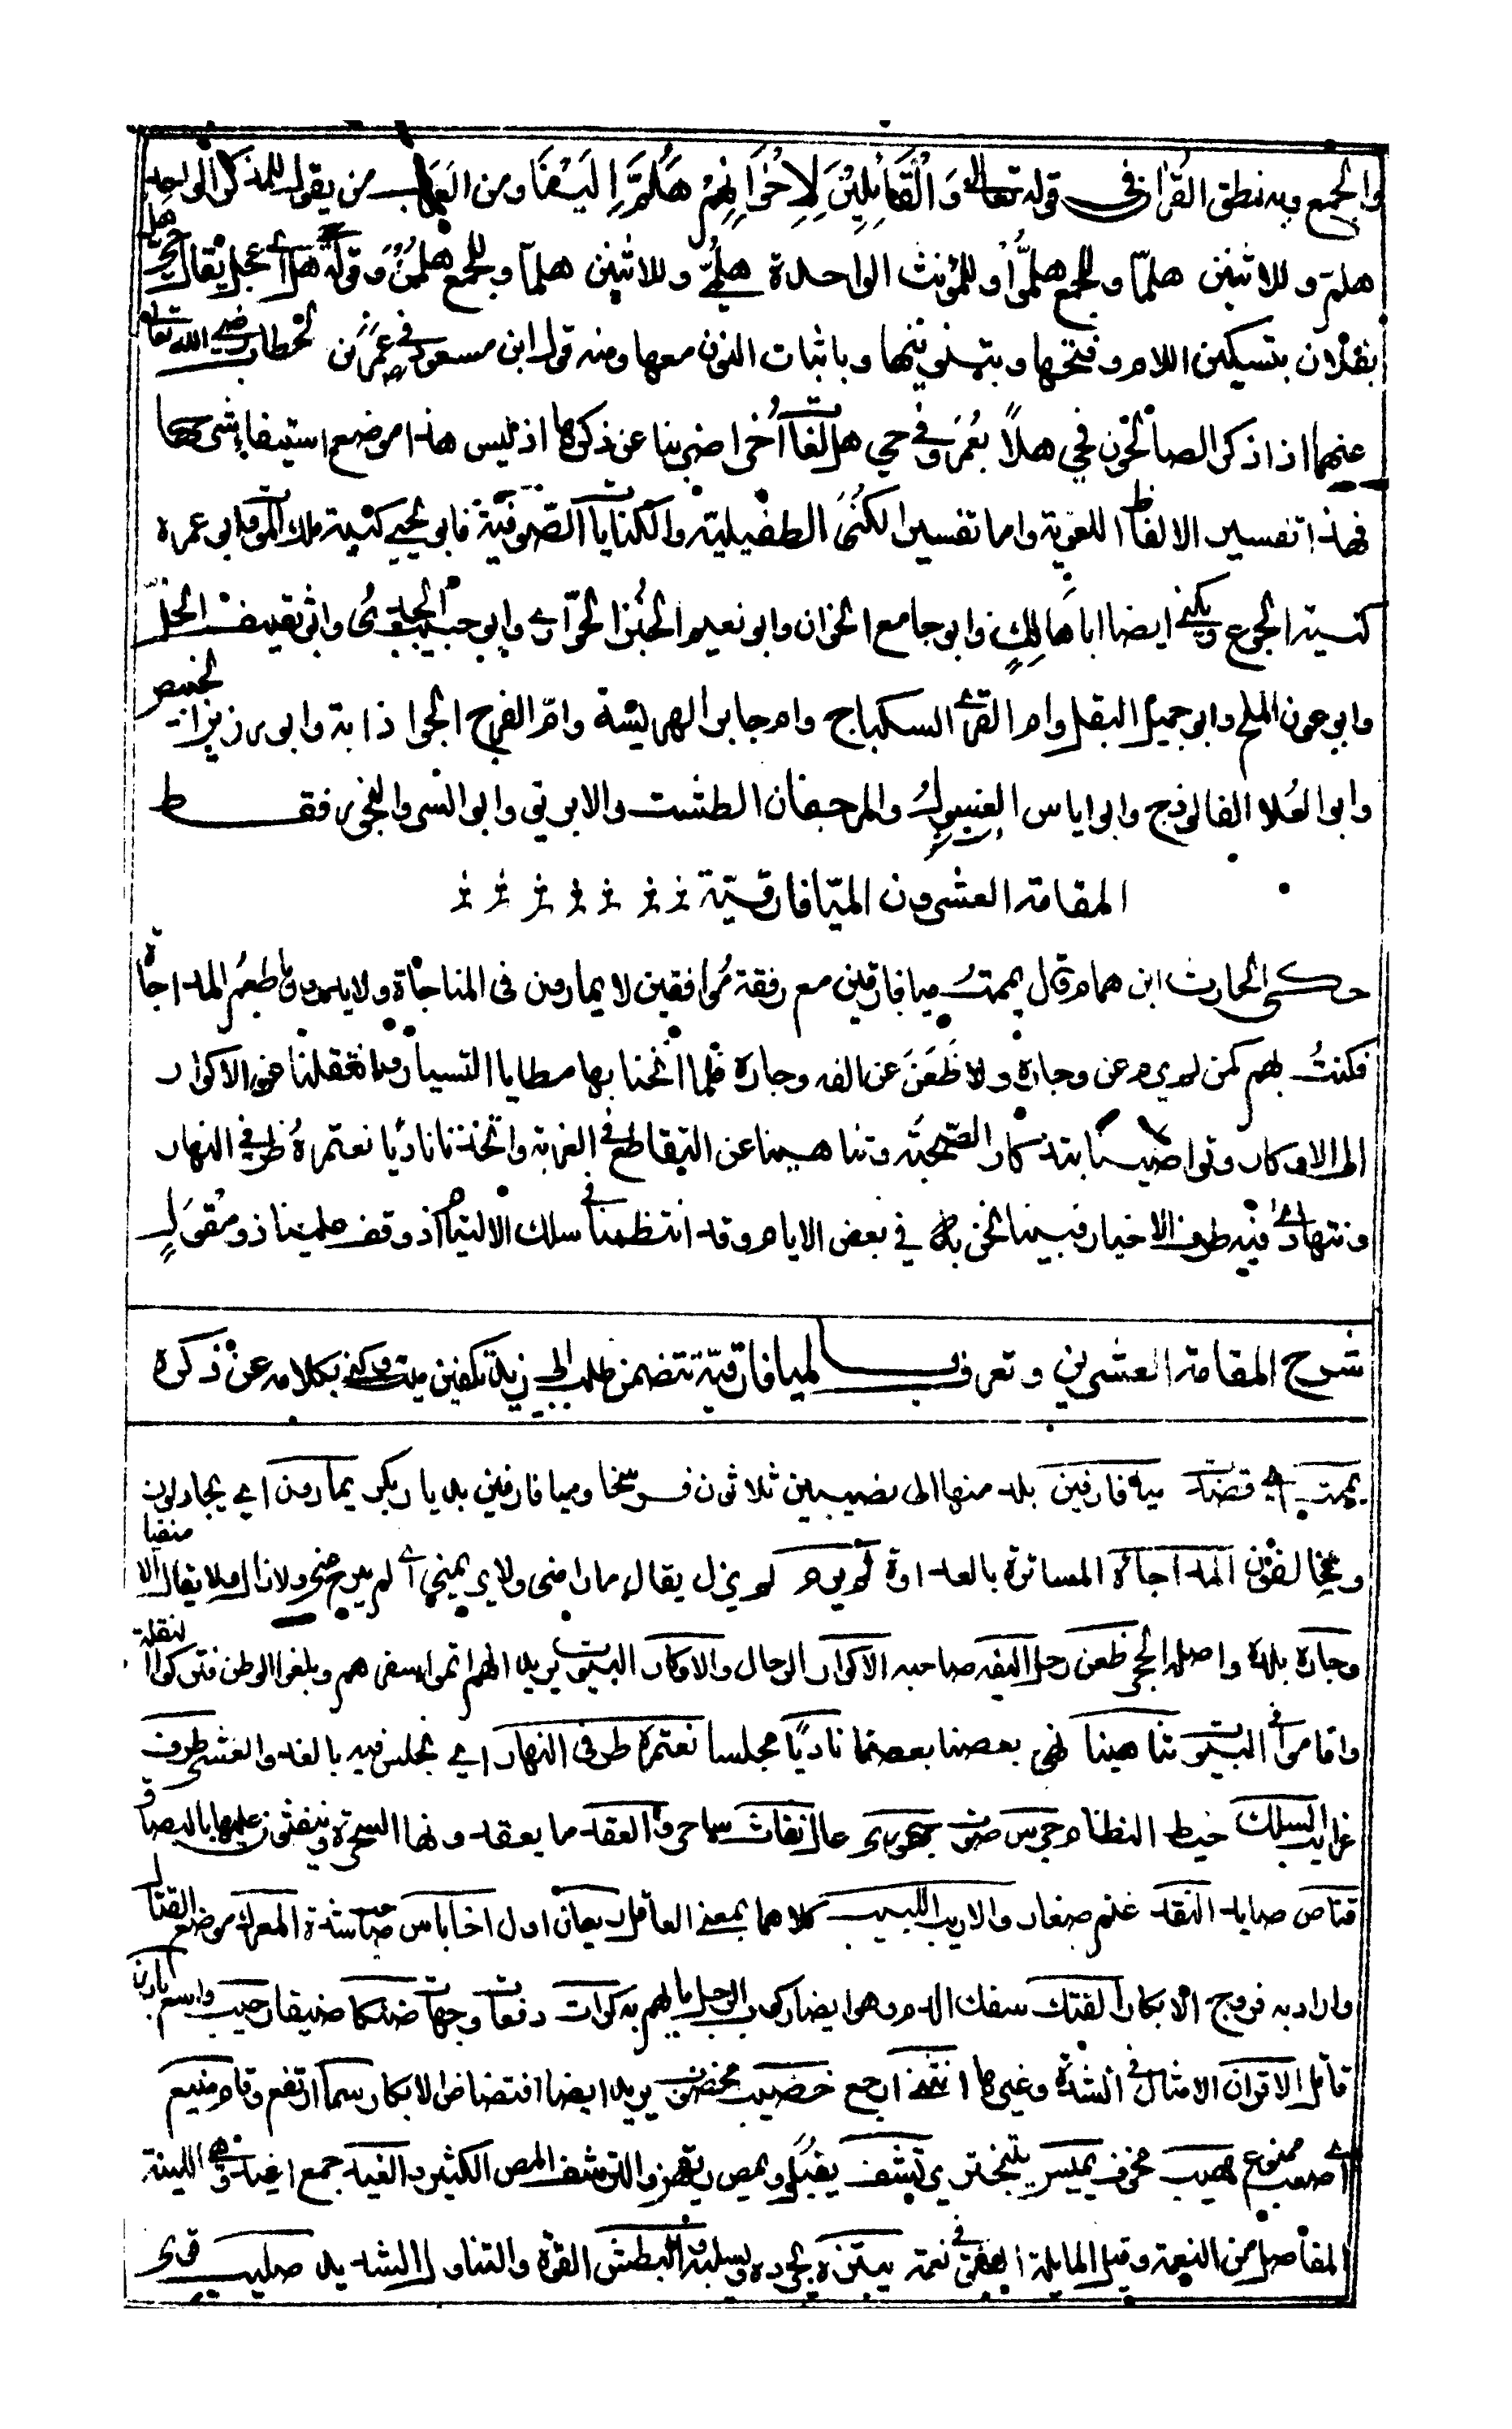 والجمع وبه نطق القرآن في قوله تعالى وَالْقَائِلِيْنَ لِاِخْوَانِهِمْ هَلُمَّ اِلَيْنَا ومن العرب من يقول للمذكر الواحد
هلم وللاثنين هلمّا وللجمع هلمُّوا وللمؤنث الواحدة هلمّي وللاثنين هلمّا وللجمع هلممن وقوله حي هل اي عجل يقال
بفلان بتسكين اللام وفتحها وبتنوينها وباثبات النون معها ومنه قول ابن مسعود في عمر بن الخطاب رضي الله تعالى
عنهما اذا ذكر الصالحون فحي هلاً بعُمَر وفي حي هل لغات اُخر اضربنا عن ذكرها اذ ليس هذا موضع استيفاء شرحها
فهذا تفسير الالفاظ اللغوية واما تفسير الكُنى الطفيلية والكنايات الصّوفيّة فابو يحيى كنية ملك الموت وابو عمرة
كنية الجوع ويكنى ايضا ابا مالِكٍ وابو جامع الخوان وابو نعيم الخُبْز الحوّارى وابو حبيب الجدى وابو ثقيف الخلّ
وابو عون الملح وابو جميل البقل وام القرى السكباج وام جابر الهريسة وامّ الفرج الجواذابة وابو رزين الخبيص
وابو العُلا الفالوذج وابو اياس الغسول والمرجفان الطشت والابريق وابو السرو البخور فقط
المقامة العشرون الميّافارقيّة
حكى الحارث ابن همام قال يممتُ ميافارقين مع رفقة مُوافقين لا يمارون فى المناجاة ولا يدرون ما طعمُ المداجاة
فكنتُ بهم كمن لم يرم عن وجاره ولا ظَعَنَ عن الفه وجاره فلما انخنا بها مطايا التسيار وانتقلنا عن الاكوار
الى الاوكار وتواصينا بتذكار الصحبة وتناهينا عن التقاطع في الغربة واتخذنا ناديًا نعتمرهُ طرفي النهار
ونتهادى فيه طرف الاخبار فبينا نحن به في بعض الايام وقد انتظمنا في سلك الالتيام اذ وقف علينا ذو مِقْوَلٍ
شرح المقامة العشرين وتعرف بالميافارقيّة تتضمن طلب ابي زيد تكفين ميت وكنى بكلامه عن ذكره
يممت اي قصدت ميافارقين بلد منها الى نصيبين ثلاثون فرسخا وميافارقين بديار بكر يمارون اي يجادلون
ويخالفون المداجاة المساترة بالعداوة لم يرم لم يزل يقال ما رامنى ولا يريمنى اي لم يبرح عنى ولا زال ولا يقال الا منفيا
وجاره بلده واصله الجحر ظعن رحل اليفه صاحبه الاكوار الرحال والاوكار البيوت يريد انهم اتموا سفرهم وبلغوا الوطن فتركوا النقلة
واقاموا في البيوت تناهينا نهى بعضنا بعضا ناديًا مجلسا نعتمره طرفي النهار اي نجلس فيه بالغد والعشي طرف
غرايب السلك خيط النظام جرس صوت جهورى عال نفاث ساحر في العقد ما يعقدونها السحرة وينفثون عليها بالبصاق
قناص صايد النقد غنم صغار والاريب اللبيب كلاهما بمعنى العاقل ريعان اول اخا باس صاحب شدة المعرك موضع القتال
واراد به فروج الابكار الفتك سفك الدم وهو ايضا ركوب الرجل ما يهم به كرات دفعات وجهات ضنكا ضيقا رحيب واسع بارز
قاتل الاقران الامثال في الشدة وغيرها انثنى ارجع خضيب مخضوب يريد ايضا افتضاض الابكار سما ارتفع وقام منيع
اي صعب ممنوع مهيب مخوف يميس يتبختر يرتشف يقبل ويمص ريقهن والترشف المص الكثير والغيد جمع اغيد وغيداء وهي اللينة
المفاصل من النعمة وقيل المايلة العنق في نعمة يبتزه يجرده ويسلبه البطش القوة والتناول الشديد صليب قوى